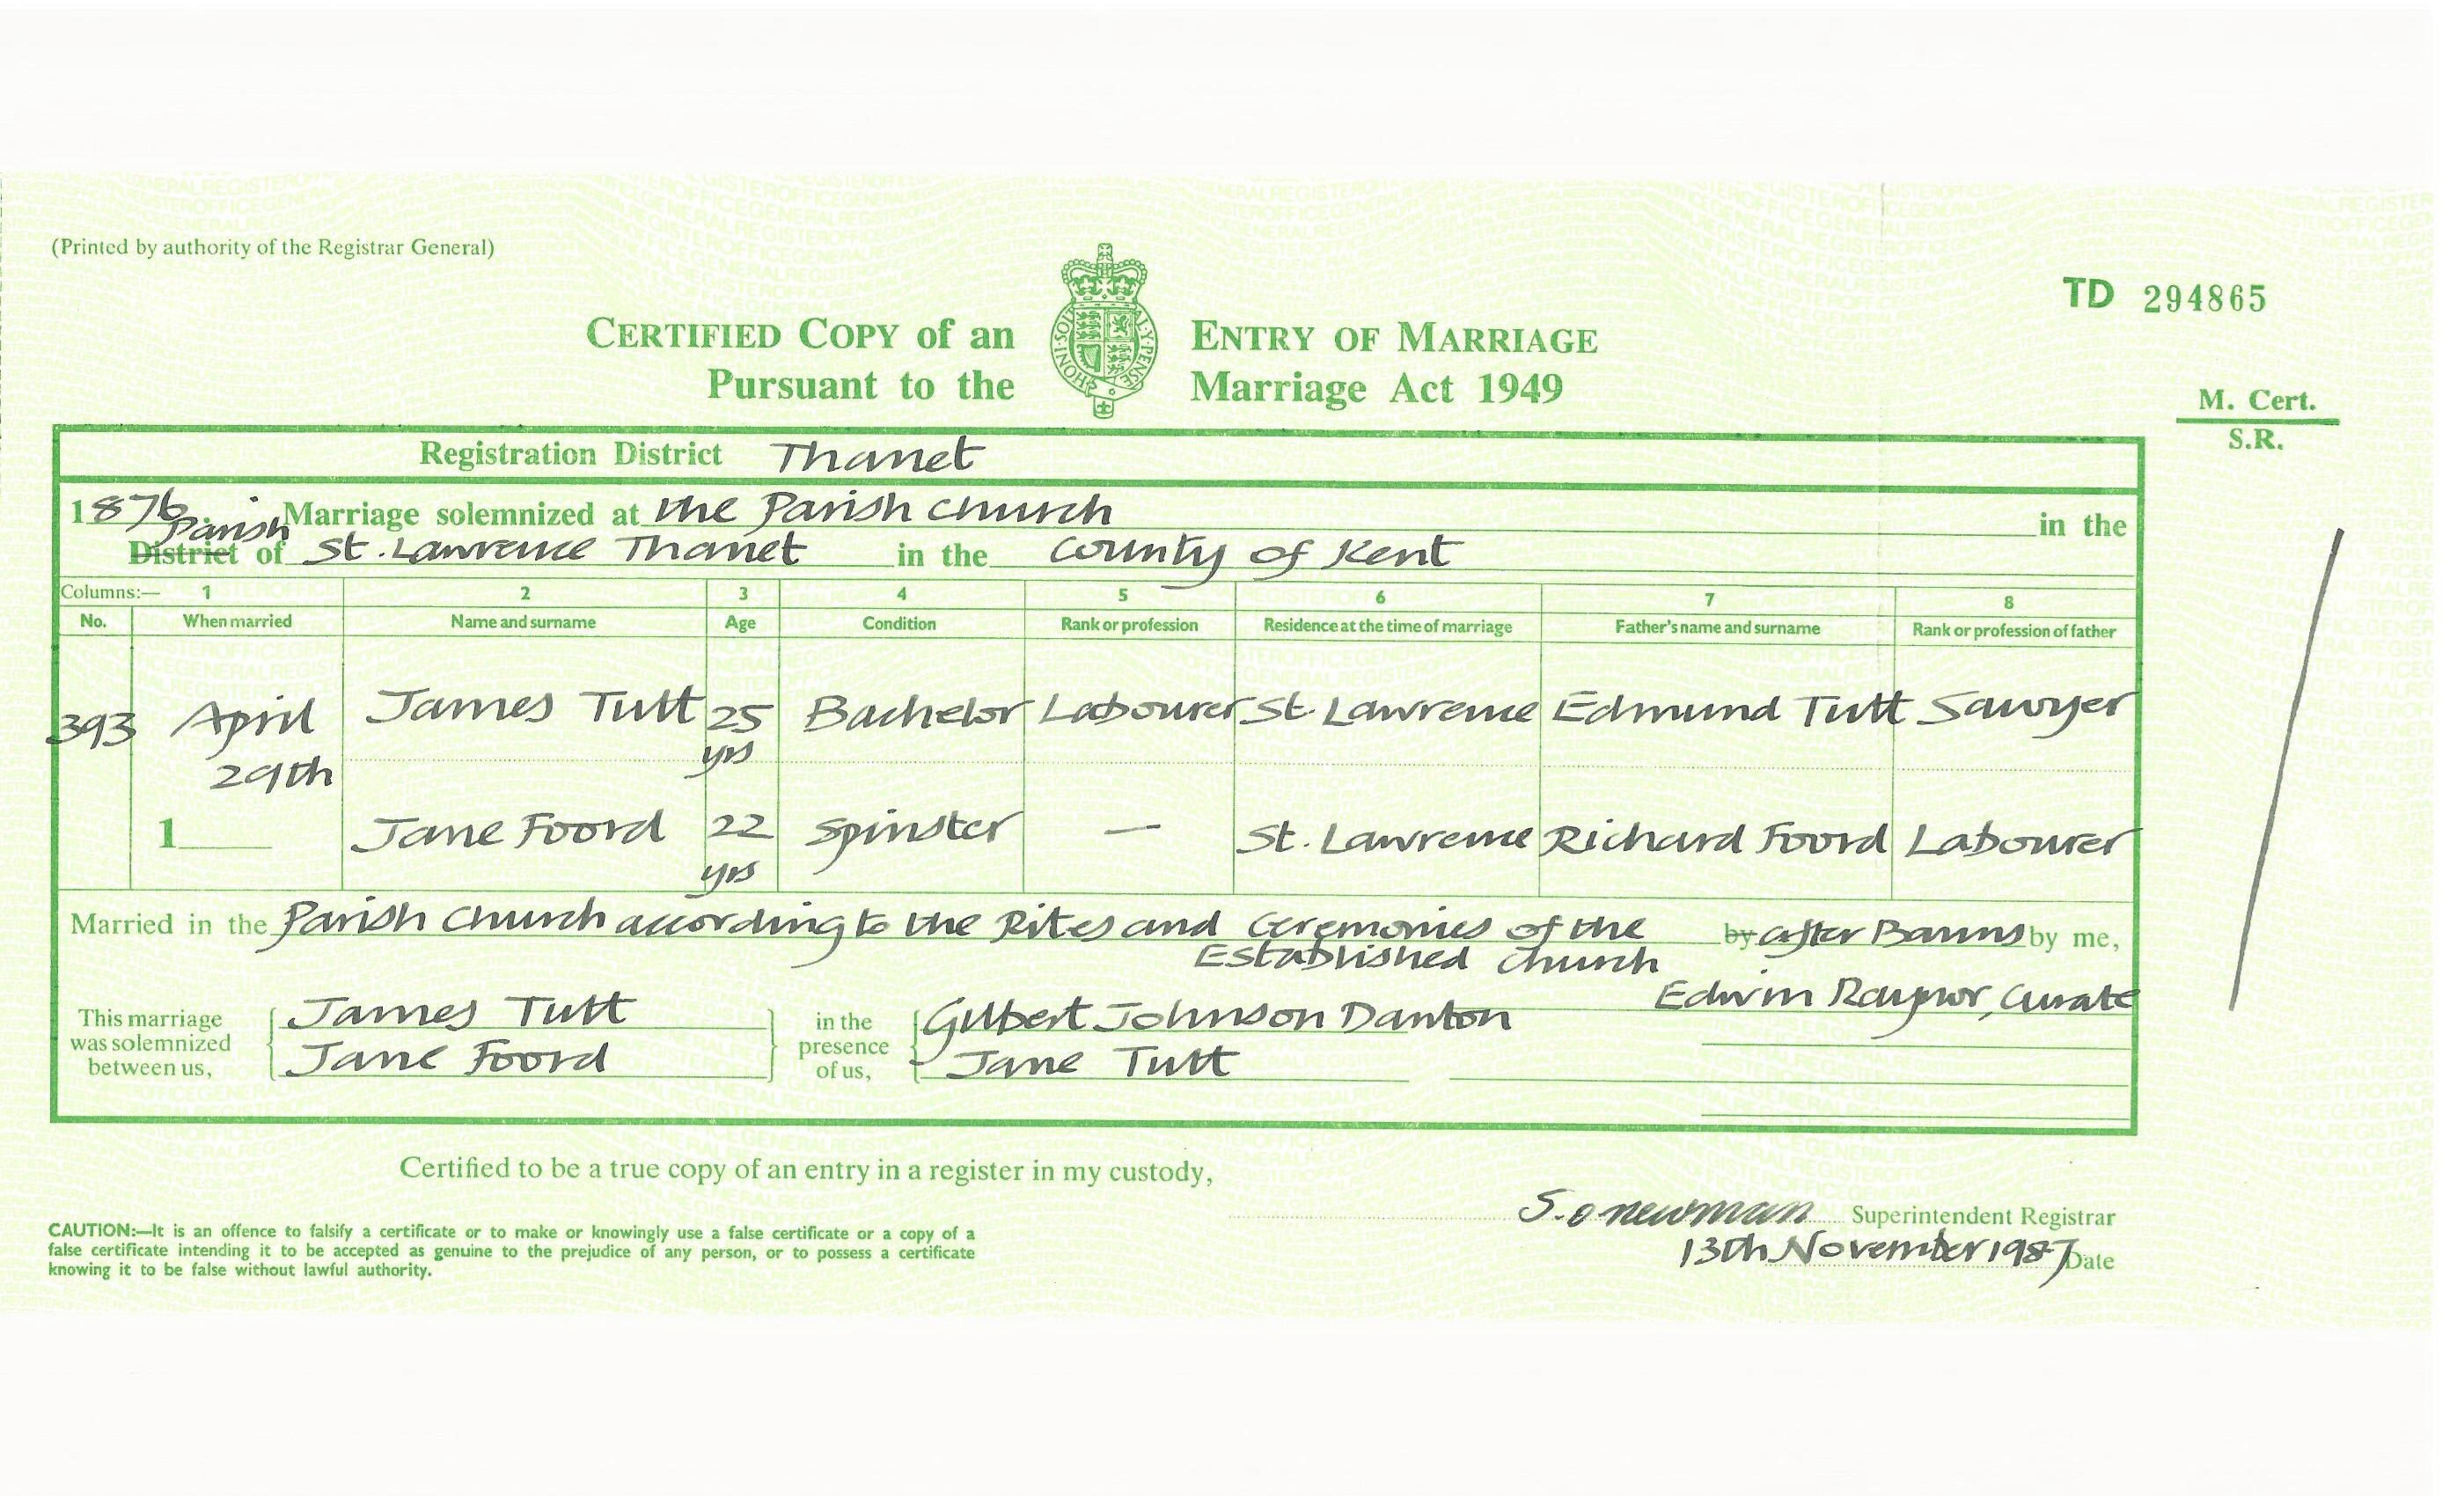 (Printed by authority of the Registrar General)
TD 294865
CERTIFIED COPY of an ENTRY OF MARRIAGE
Pursuant to the Marriage Act 1949
HONI·SOIT
Y·PENSE
M. Cert.
S.R.
Registration District Thanet
1876. Marriage solemnized at the Parish Church in the
Parish
District of St. Lawrence Thanet in the County of Kent
Columns:— 1 2 3 4 5 6 7 8
No. When married Name and surname Age Condition Rank or profession Residence at the time of marriage Father's name and surname Rank or profession of father
393 April James Tutt 25 Bachelor Labourer St. Lawrence Edmund Tutt Sawyer
29th yrs
1 Jane Foord 22 Spinster — St. Lawrence Richard Foord Labourer
yrs
Married in the Parish Church according to the Rites and Ceremonies of the by after Banns by me,
Established Church
Edwin Raynor, Curate
This marriage was solemnized between us,
James Tutt
Jane Foord
in the presence of us,
Gilbert Johnson Danton
Jane Tutt
Certified to be a true copy of an entry in a register in my custody,
S. O Newman Superintendent Registrar
13th November 1987 Date
CAUTION:—It is an offence to falsify a certificate or to make or knowingly use a false certificate or a copy of a
false certificate intending it to be accepted as genuine to the prejudice of any person, or to possess a certificate
knowing it to be false without lawful authority.